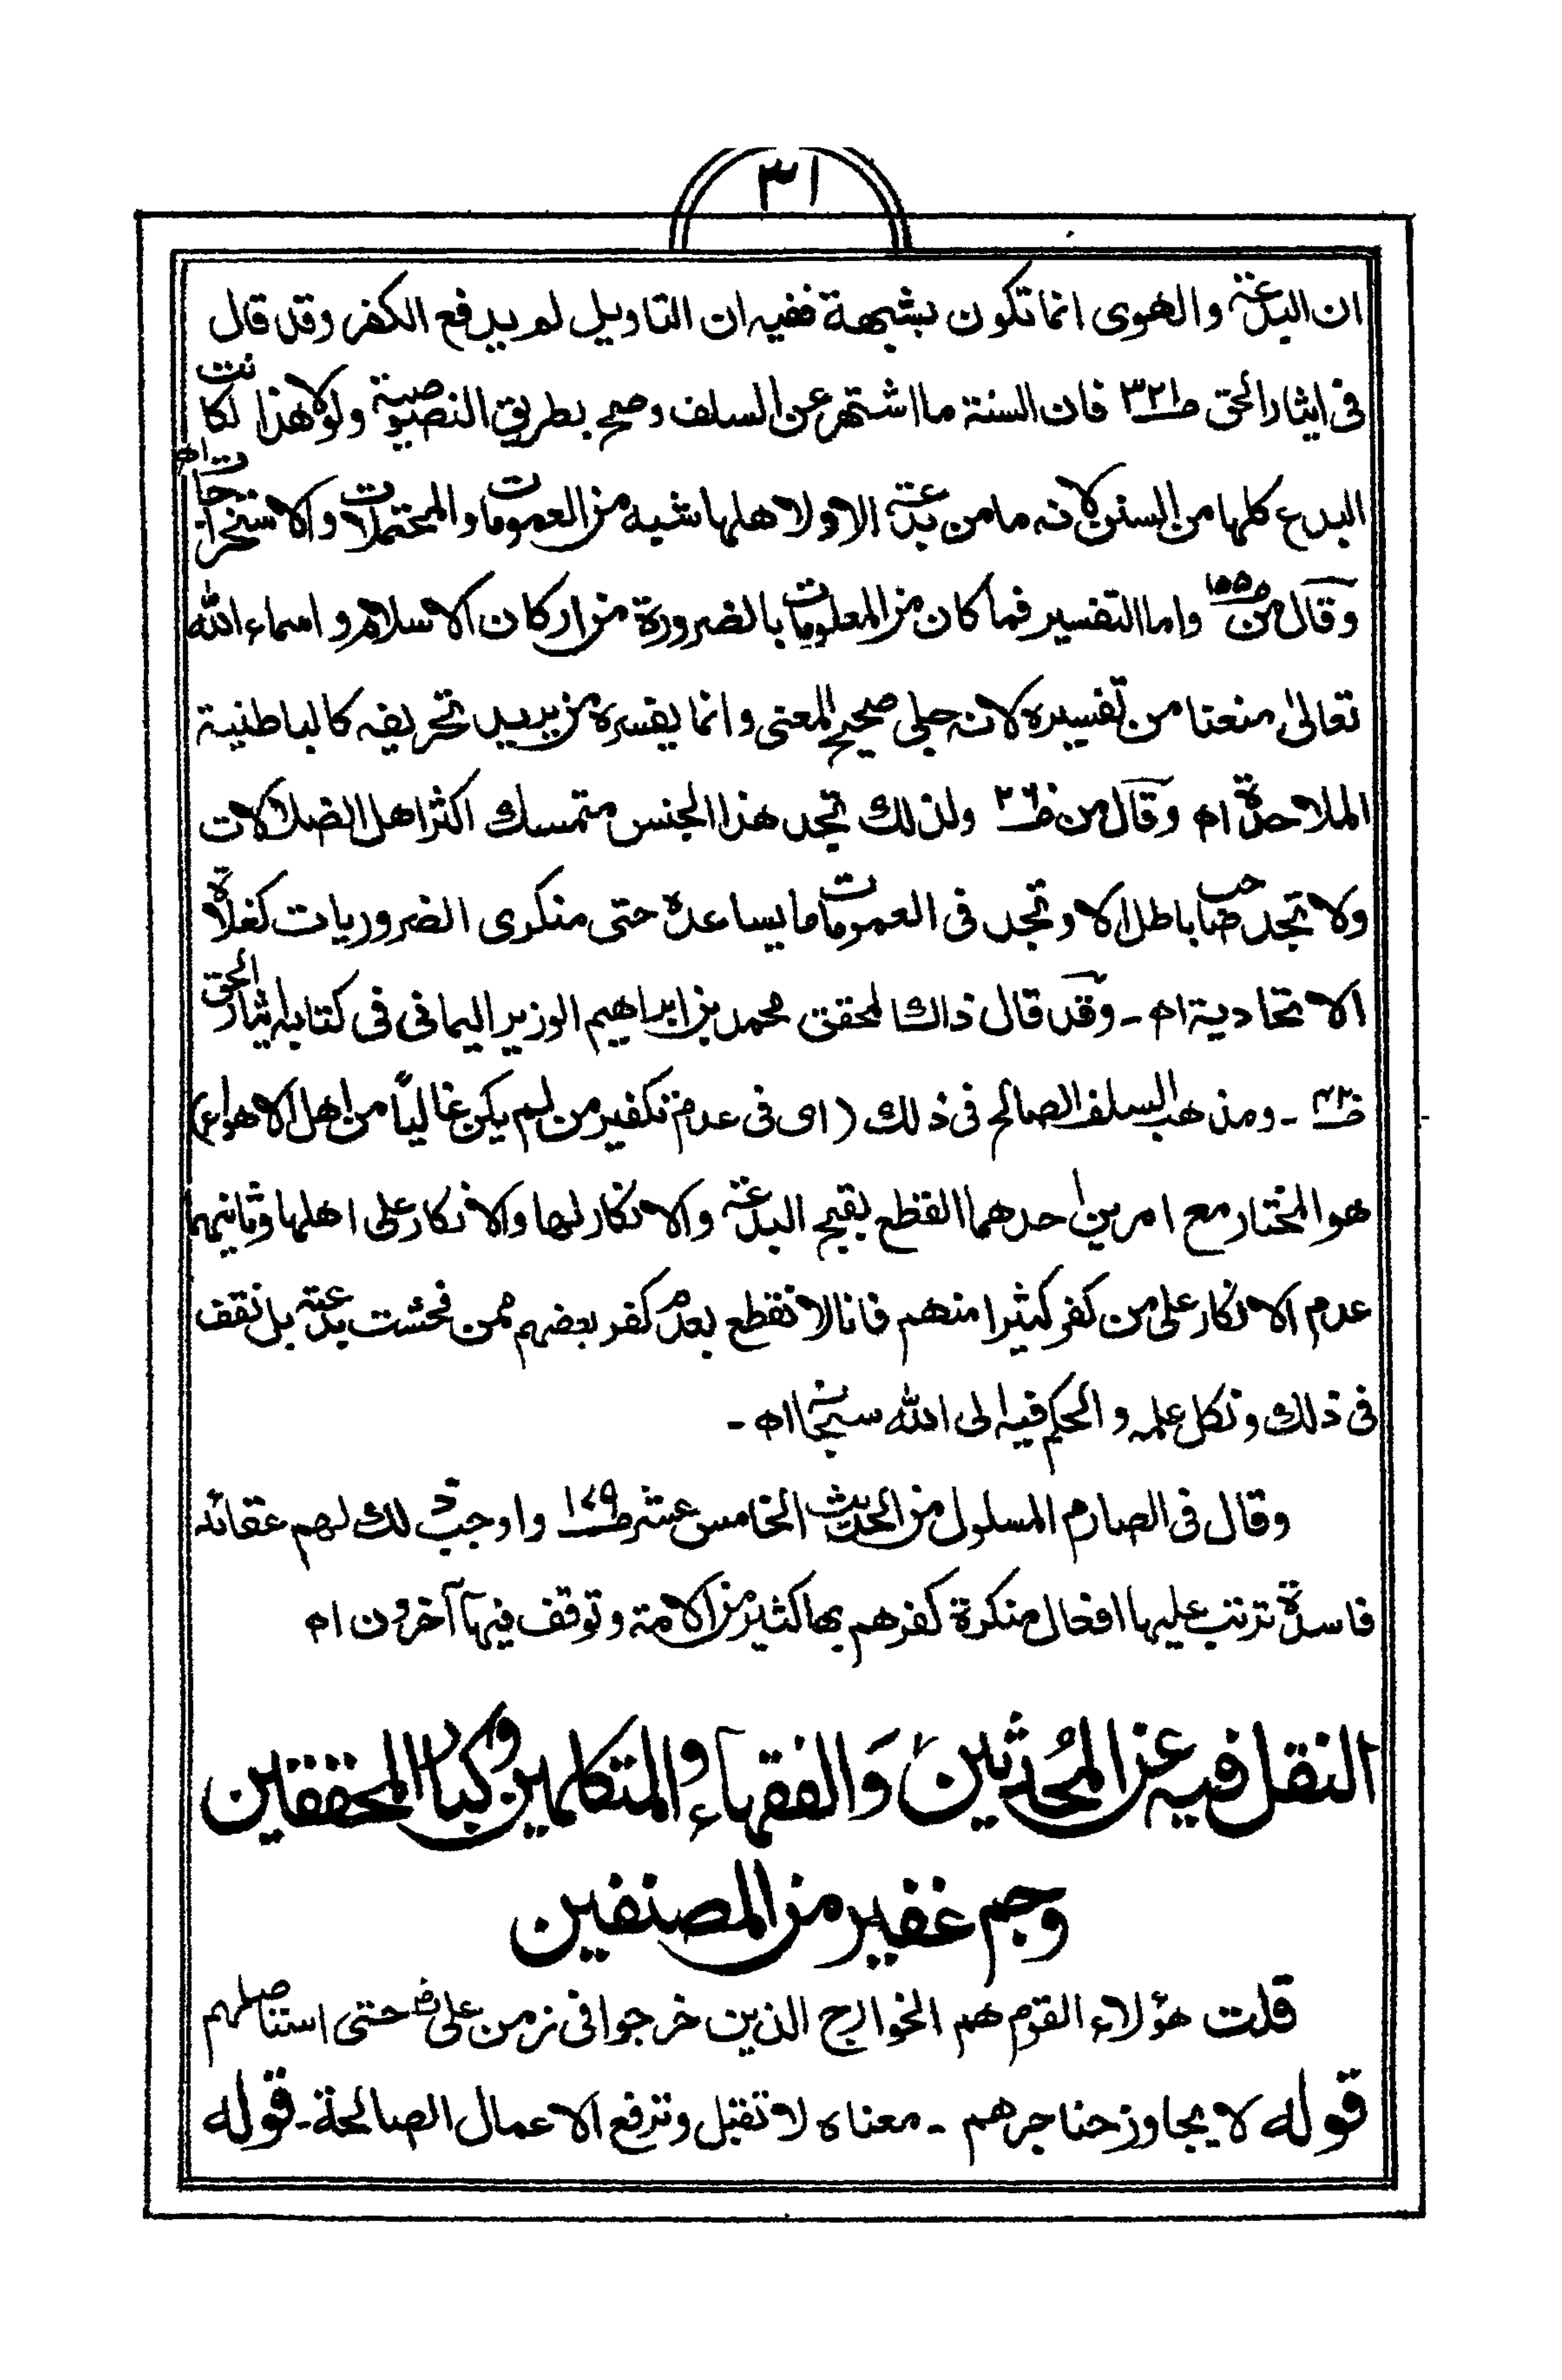 ٣١
ان البدعة والهوى انما تكون بشبهة ففيه ان التاويل لم يدفع الكفر وقد قال
فى ايثار الحق ص٣٢١ فان السنة ما اشتهر عن السلف وصح بطريق النصوصية ولولا هذا لكانت
البدع كلها من السنن لانه ما من بدعة الا ولاهلها شبه من العمومات والمحتملات والاستخراجات اھ
وقال من ص١٥٥ واما التفسير فما كان من المعلومات بالضرورة من اركان الاسلام و اسماء الله
تعالىٰ منعنا من تفسيره لانه جلى صحيح المعنى وانما يفسره من يريد تحريفه كالباطنية
الملاحدة اھ وقال من ص ولذلك تجد هذا الجنس متمسك اكثر اهل الضلالات
ولا تجد صاحب باطل الا وتجد فى العمومات ما يساعده حتى منكرى الضروريات كغلاة
الاتحادية اھ ـ وقد قال ذاك المحقق محمد بن ابراهيم الوزير اليمانى فى كتابه ايثار الحق
ص ـ ومذهب السلف الصالح فى ذلك (اى فى عدم تكفير من لم يكن غالياً من اهل الاهواء)
هو المختار مع امرين احدهما القطع بقبح البدعة والانكار لها والانكار على اهلها وثانيهما
عدم الانكار على من كفر كثيرا منهم فانا لا نقطع بعدم كفر بعضهم ممن فحشت بدعته بل نقف
فى ذلك ونكل علمه و الحكم فيه الى الله سبحانه اھ ـ
وقال فى الصارم المسلول من الحديث الخامس عشر ص١٧٩ واوجب ذلك لهم عقائد
فاسدة ترتب عليها افعال منكرة كفرهم بها كثير من الامة وتوقف فيها آخرون اھ
النقل فيه عن المُحدثين وَالفقهاء والمتكلمين وكبار المحققين
وجم غفير من المصنفين
قلت هؤلاء القوم هم الخوارج الذين خرجوا فى زمن على رض حتى استاصلهم
قوله لا يجاوز حناجرهم ـ معناه لا تقبل وترفع الاعمال الصالحة ـ قوله